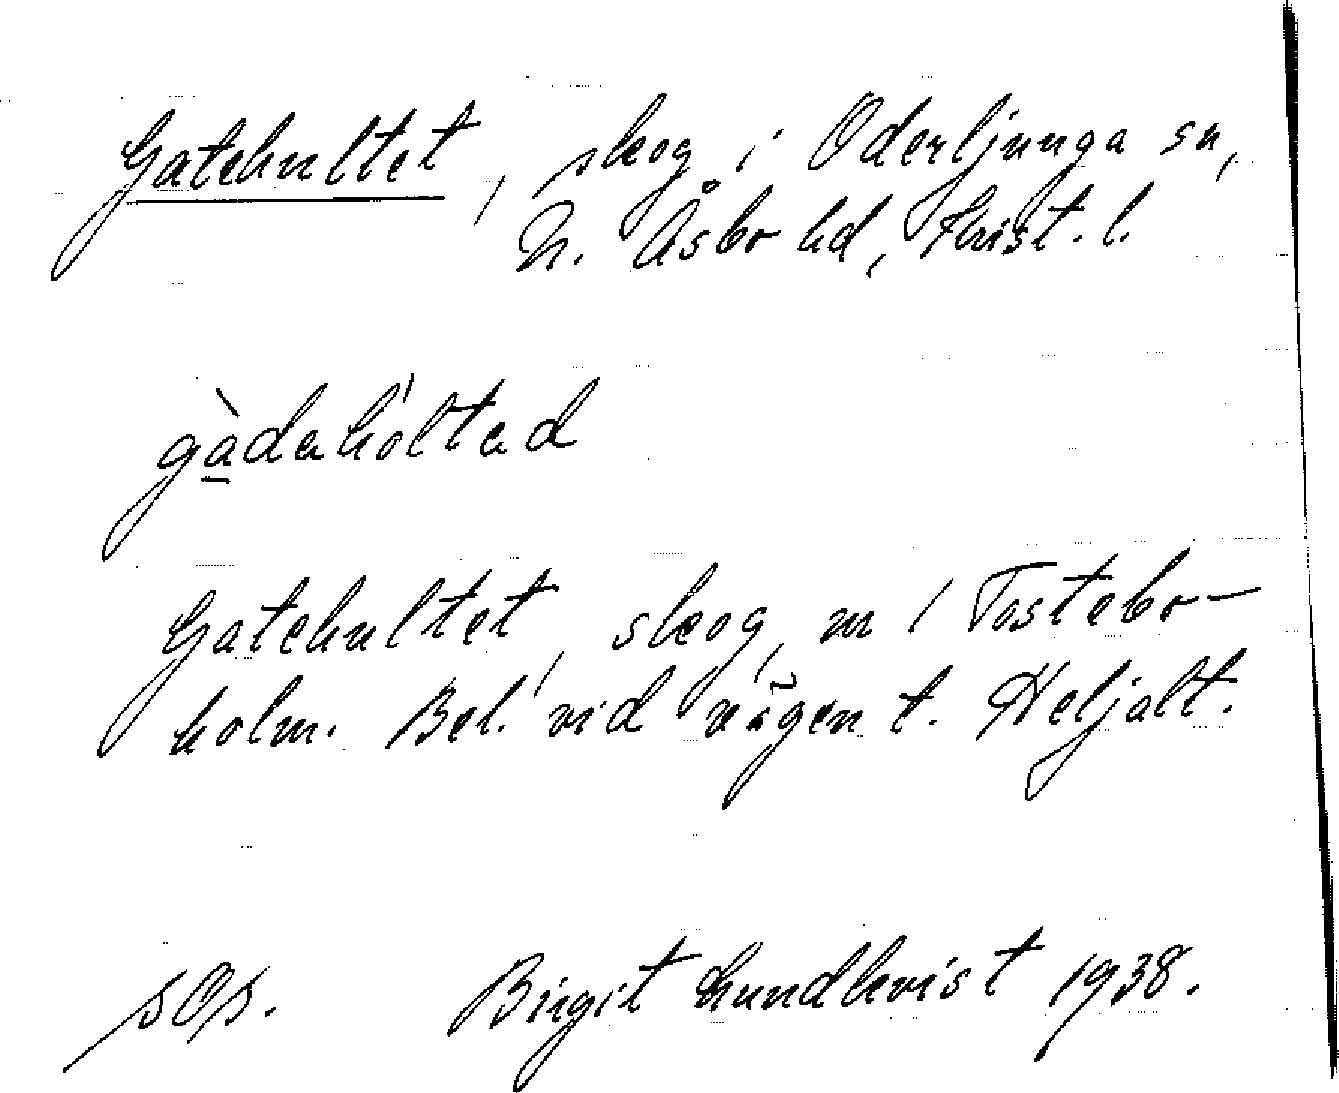 Gatehultet, skog i Oderljunga sn,
N. Åsbo hd, Krist. l.
gàdahóltad
Gatehultet, skog, m l Tostebo-
holm. Bel. vid vägen t. Heljalt.
sOp. Birgit Lundkvist 1938.